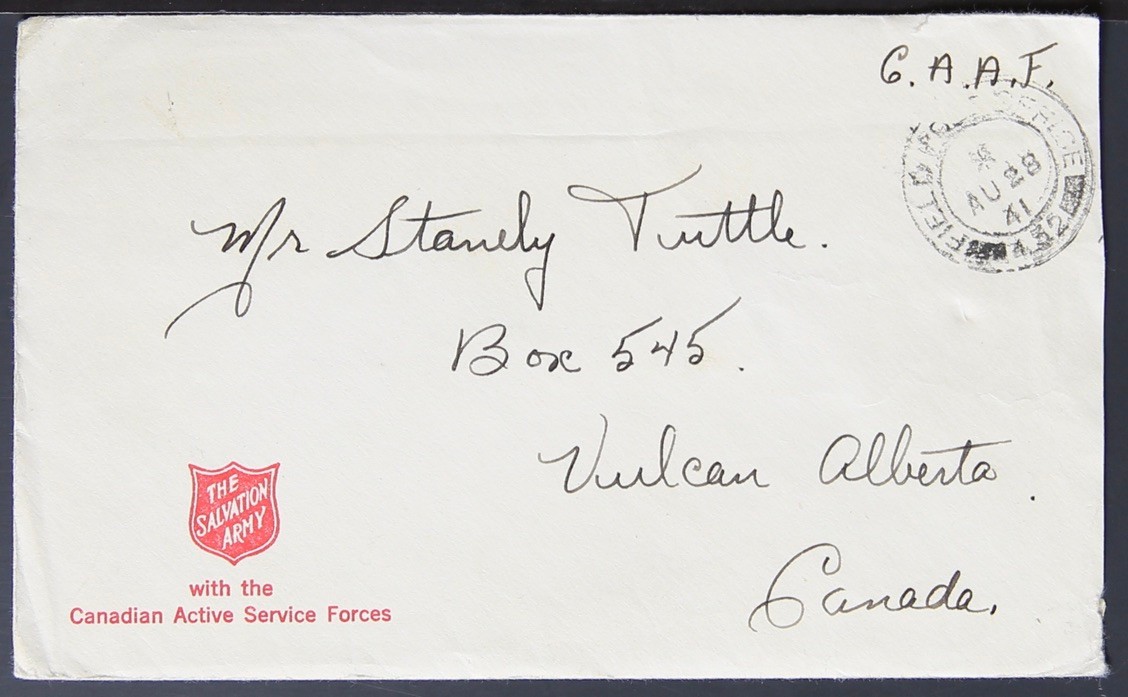 C.A.A.F.
FIELD POST OFFICE
AU 28
41
432
Mr Stanely Tuttle.
Box 545.
Vulcan Alberta.
Canada.
THE
SALVATION
ARMY
with the
Canadian Active Service Forces